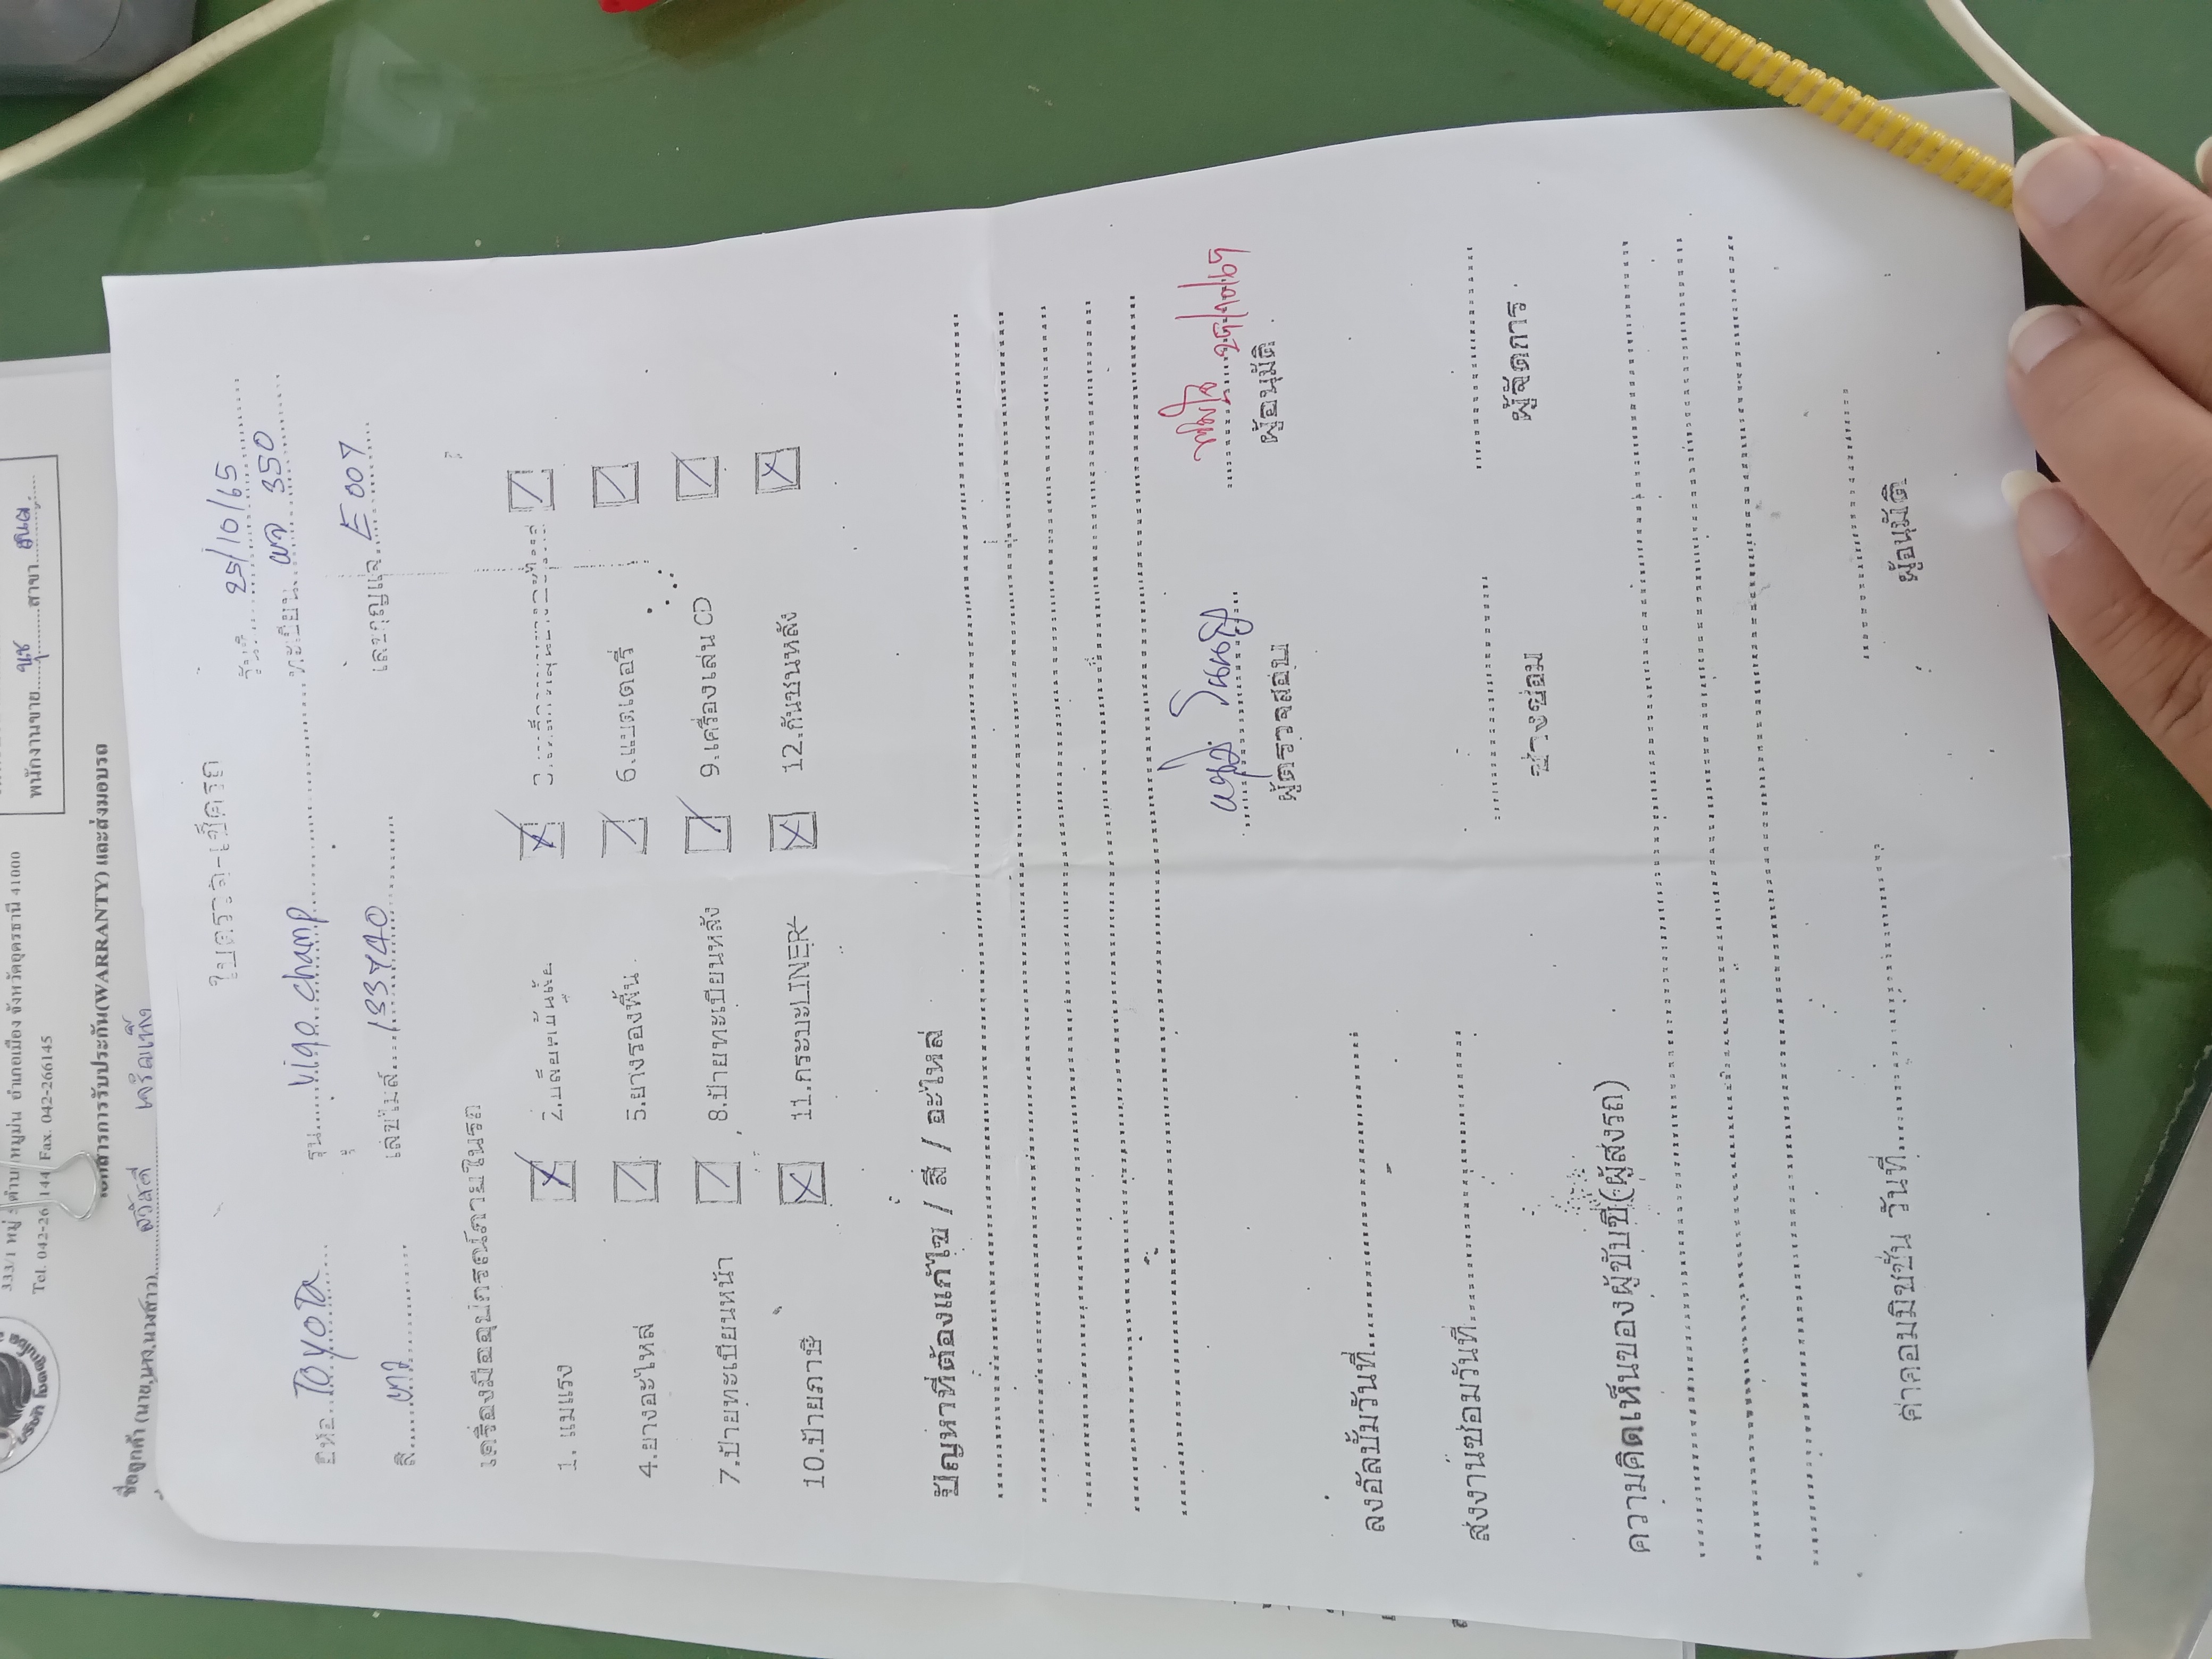 333/1 หมู่ ตำบลหมูม่น อำเภอเมือง จังหวัดอุดรธานี 41000
Tel. 042-26 144 Fax. 042-266145
พนักงานขาย นุช สาขา
เอกสารการรับประกัน(WARRANTY) และส่งมอบรถ
ชื่อลูกค้า (นาย,นาง,นางสาว) สวัสดี
ใบตรวจ-เช็ครถ
วันที่ 25/10/65
ยี่ห้อ TOYOTA รุ่น Vigo champ ทะเบียน ผจ 350
สี เทา เลขไมล์ 133740 เลขกุญแจ E007
เครื่องมืออุปกรณ์ภายในรถ
1. แม่แรง 2.บล็อคขันล้อ
4.ยางอะไหล่ 5.ยางรองพื้น 6.แบตเตอรี่
7.ป้ายทะเบียนหน้า 8.ป้ายทะเบียนหลัง 9.เครื่องเล่น CD
10.ป้ายภาษี 11.กระบะLINER 12.กันชนหลัง
ปัญหาที่ต้องแก้ไข / สี / อะไหล่
25/10/65
ผู้ตรวจสอบ ผู้อนุมัติ
ลงอัลบั้มวันที่
ส่งงานซ่อมวันที่
ช่างซ่อม ผู้จัดการ
ความคิดเห็นของผู้ขับขี่(ผู้ส่งรถ)
ค่าคอมมิชชั่น วันที่
ผู้อนุมัติ